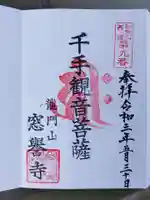 第九番
参拝令和三年五月三十日
千手観音菩薩
龍門山
窓譽寺